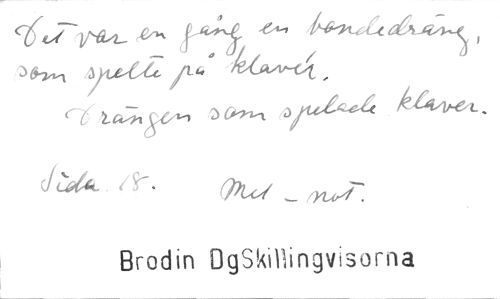 Det var en gång en bondedräng,
som spelte på klavér.
Drängen som spelade klaver.
Sida 18. Mel-not.
Brodin DgSkillingvisorna